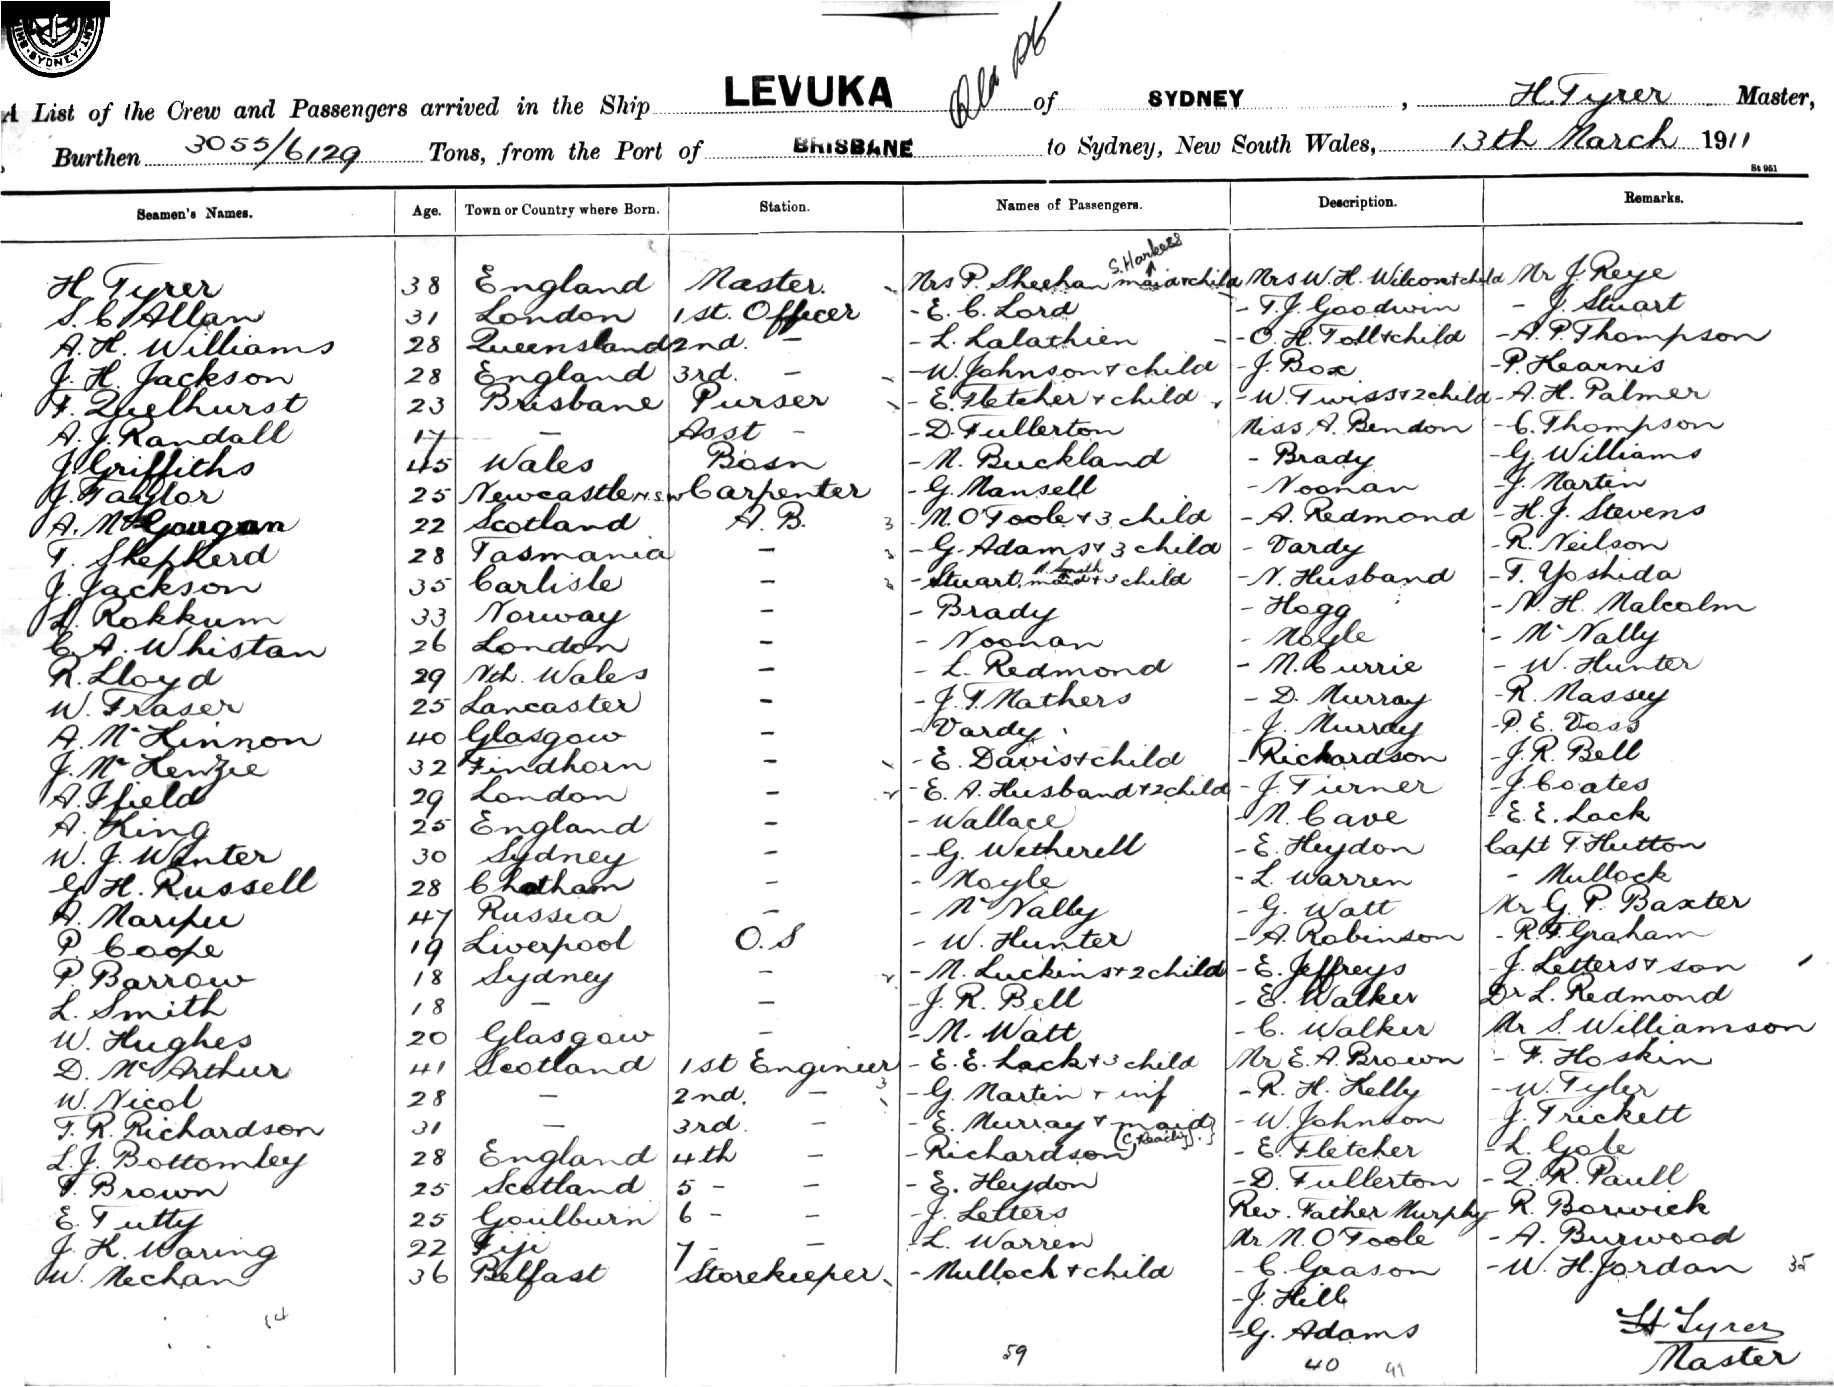 SYDNEY
Old pt
A List of the Crew and Passengers arrived in the Ship LEVUKA of SYDNEY , H. Tyrer Master,
Burthen 3055/6129 Tons, from the Port of BRISBANE to Sydney, New South Wales, 13th March 1911
St 951
Seamen's Names. Age. Town or Country where Born. Station. Names of Passengers. Description. Remarks.
S. Harkess
H. Tyrer 38 England Master. Mrs P. Sheehan maid + child Mrs W. H. Wilcon + child Mr J. Reye
S. C. Allan 31 London 1st. Officer - E. C. Lord - T. J. Goodwin - J. Stuart
A. H. Williams 28 Queensland 2nd. - - L. Lalathien - O. H. Toll + child - A. P. Thompson
J. H. Jackson 28 England 3rd. - - W. Johnson + child - J. Box - P. Hearnis
F. Quelhurst 23 Brisbane Purser - E. Fletcher + child - W. Twiss + 2 child - A. H. Palmer
A. J. Randall 17 - Asst - - D. Fullerton Miss A. Bendon - C. Thompson
J. Griffiths 45 Wales Bosn - M. Buckland - Brady - G. Williams
J. Taylor 25 Newcastle N.S.W Carpenter - G. Mansell - Noonan - J. Martin
A. McGougan 22 Scotland A. B. 3 - M. O'Toole + 3 child - A. Redmond - H. J. Stevens
T. Shepherd 28 Tasmania - 3 - G. Adams + 3 child - Vardy - R. Neilson
J. Jackson 35 Carlisle - 3 - Stuart, N. Smith maid + 3 child - N. Husband - T. Yoshida
L. Rokkum 33 Norway - - Brady - Hogg - N. H. Malcolm
C. A. Whistan 26 London - - Noonan - Moyle - McNally
R. Lloyd 29 Nth. Wales - - L. Redmond - M. Currie - W. Hunter
W. Fraser 25 Lancaster - - J. T. Mathers - D. Murray - R. Massey
A. McKinnon 40 Glasgow - - Vardy - J. Murray - P. E. Voss
J. McKenzie 32 Findhorn - - E. Davis + child - Richardson - J. R. Bell
A. Ifield 29 London - - E. A. Husband + 2 child - J. Turner - J. Coates
A. King 25 England - - Wallace - M. Cave - E. E. Lack
W. J. Winter 30 Sydney - - G. Wetherell - E. Heydon Capt T. Hutton
G. H. Russell 28 Chatham - - Moyle - L. Warren - Mullock
A. Maripu 47 Russia - - McNally - G. Watt Mr G. P. Baxter
P. Coope 19 Liverpool O. S - W. Hunter - A. Robinson - R. F. Graham
P. Barrow 18 Sydney - - M. Luckins + 2 child - E. Jeffreys - J. Letters + son
L. Smith 18 - - - J. R. Bell - E. Walker Dr L. Redmond
W. Hughes 20 Glasgow - - M. Watt - C. Walker Mr S. Williamson
D. McArthur 41 Scotland 1st Engineer - E. E. Lack + 3 child Mr E. A. Brown - F. Hoskin
W. Nicol 28 - 2nd. - 3 - G. Martin + inf - R. H. Kelly - W. Tyler
T. R. Richardson 31 - 3rd. - - E. Murray + maid - W. Johnson - J. Trickett
L. J. Bottomley 28 England 4th - - Richardson - E. Fletcher - L. Gole
F. Brown 25 Scotland 5 - - - E. Heydon - D. Fullerton - Q. R. Paull
E. Tutty 25 Goulburn 6 - - - J. Letters Rev. Father Murphy - R. Borwick
J. K. Waring 22 Fiji 7 - - - L. Warren Mr M. O'Toole - A. Burwood
W. Mechan 36 Belfast Storekeeper - Mulloch + child - C. Grason - W. H. Jordan 35
- J. Hill
14 - G. Adams H Tyrer
59 40 41 Master